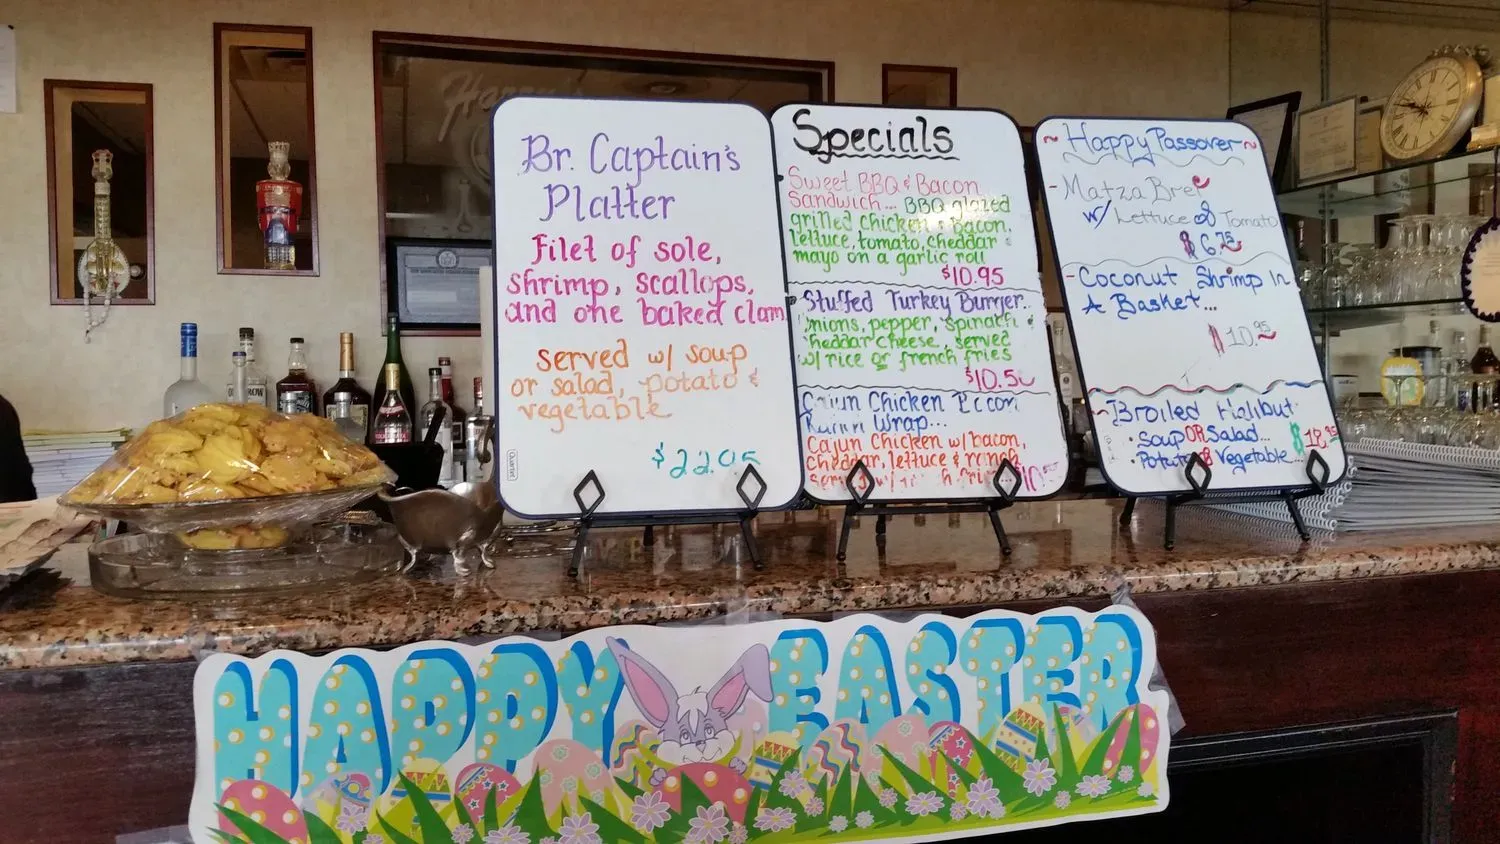 Br. Captain's
Platter
filet of sole,
shrimp, scallops,
and one baked clam
served w/ soup
or salad, potato &
vegetable
$22.95
Specials
Sweet BBQ & Bacon
Sandwich... BBQ glazed
grilled chicken & bacon,
lettuce, tomato, cheddar &
mayo on a garlic roll
$10.95
Stuffed Turkey Burger..
onions, pepper, spinach &
cheddar cheese, served
w/ rice or french fries
$10.50
Cajun Chicken Bacon
Wrap...
Cajun Chicken w/ bacon,
cheddar, lettuce & ranch
~Happy Passover~
- Matza Brei
w/ Lettuce & Tomato
$6.75
- Coconut Shrimp In
A Basket...
$10.95
~ Broiled Halibut
• Soup OR Salad...
• Potato & Vegetable...
$18.95
Quartet
HAPPY EASTER